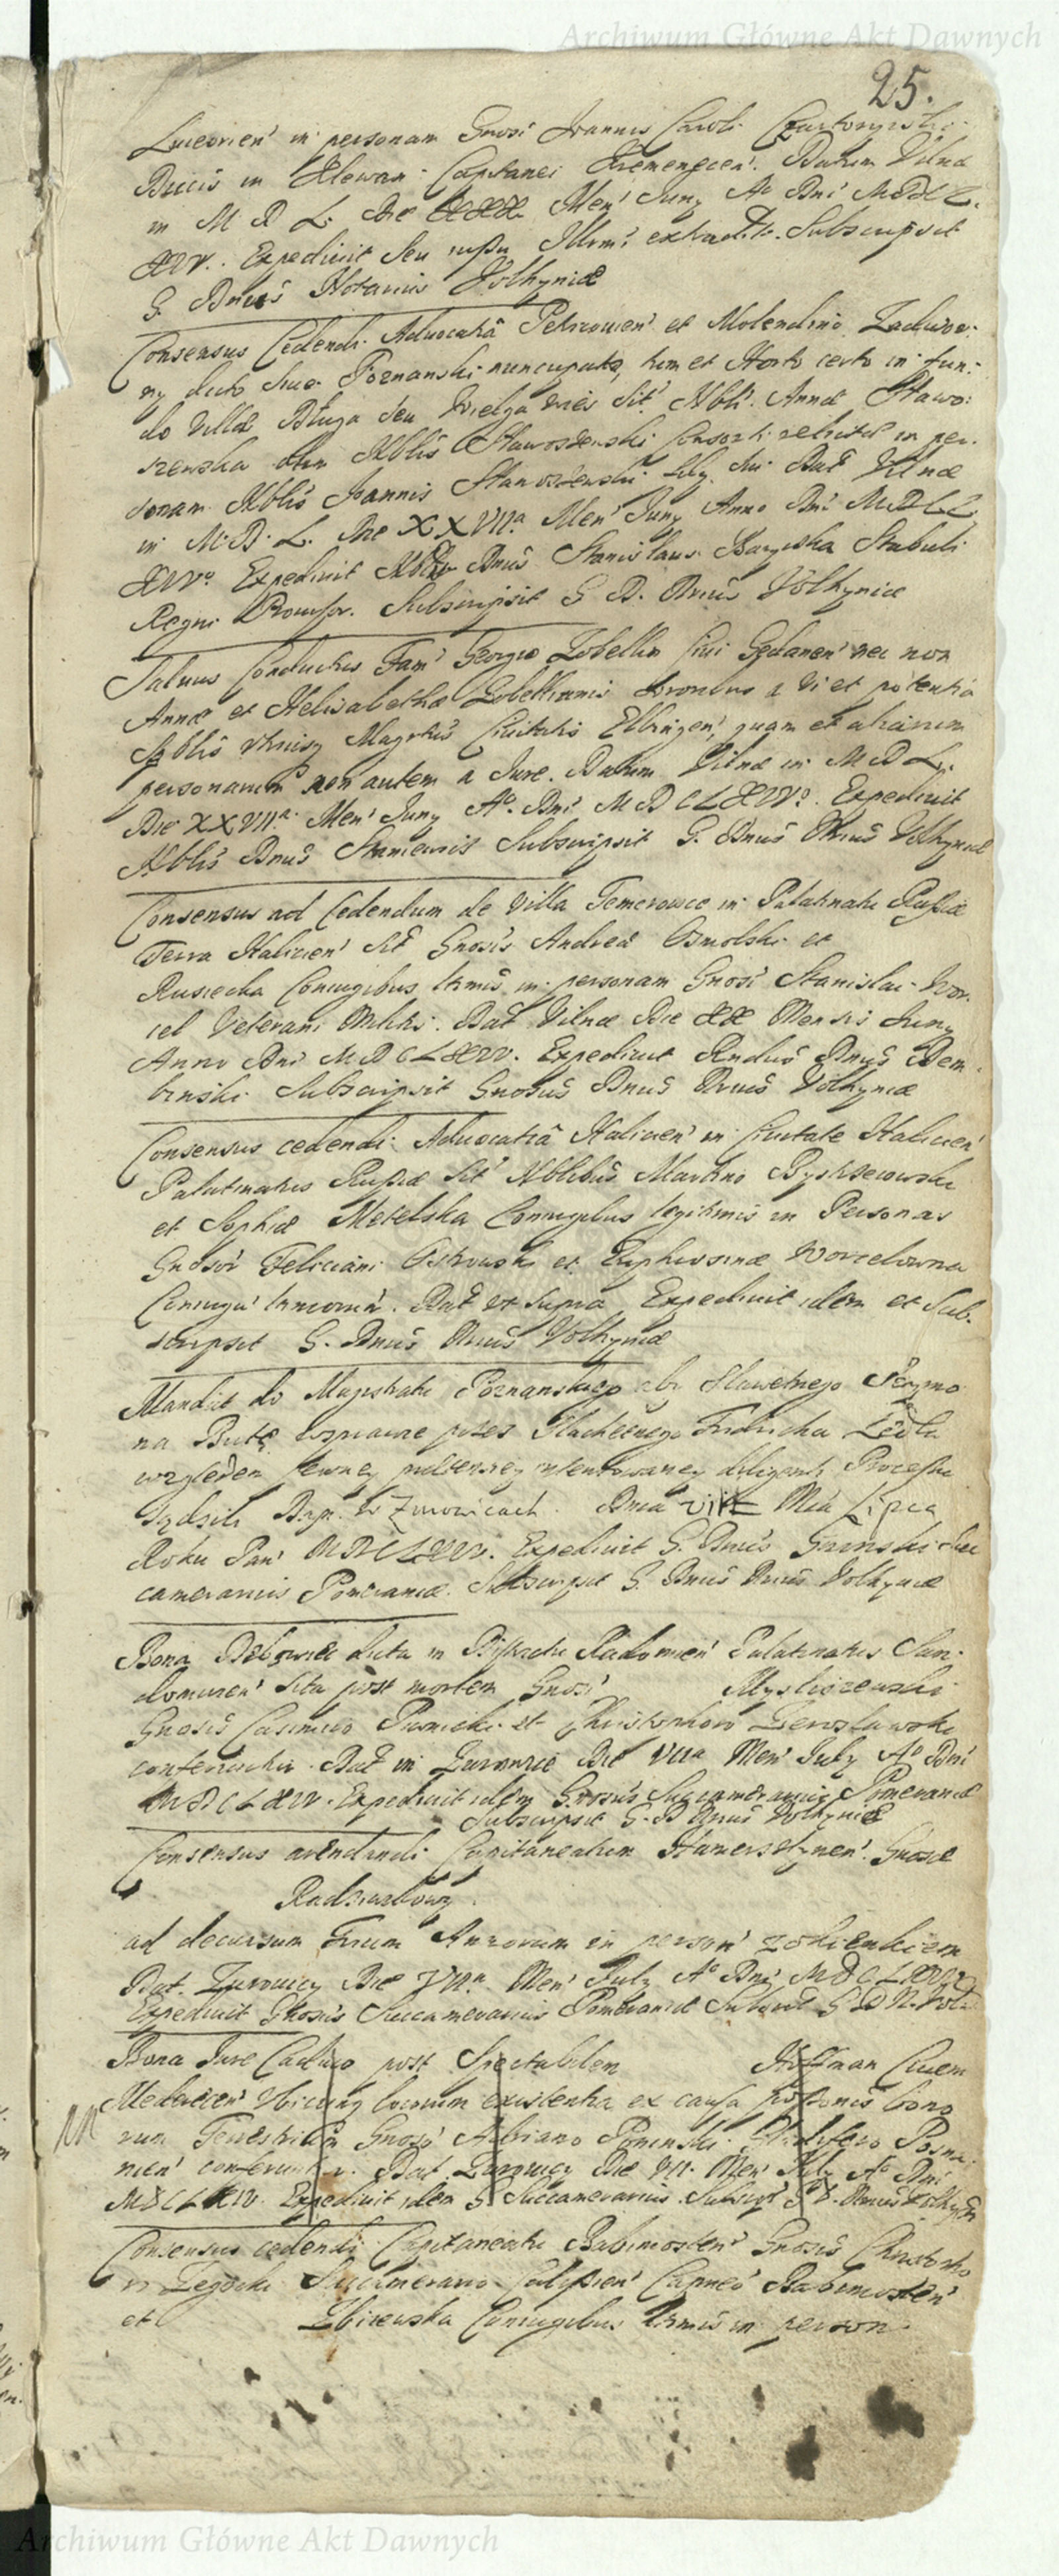 Archiwum Główne Akt Dawnych
25.
Luceorien' in personam Gnosi Joannis Caroli Czartoryski
Ducis in Klewan Capitanei Kremenecen'. Datum Vilnæ
in M D L. Die XXX Men' Juny Ao Dni MDCL
XIV. Expedivit seu iussu Illrmi extradit. Subscripsit
G. Dnus Notarius Volhyniæ
Consensus Cedendi Advocatiâ Petricovien' et Molendino
ny dicto sive Poznanski nuncupato, tum et Horto certo in fun:
do Villæ Długa seu Wielga wies Sit' Nbli Annæ Stawo:
szewska olim Nblis Stawoszewski Consorti relictæ in per.
sonam Nblis Joannis Stawoszewski fily sui Dat Vilnæ
in M. D. L. Die XXVIIa Men' Juny Anno Dni MDCL
XIVo. Expedivit Dnus Stanislaus Stabuli
Regni Subscripsit G D. Nrius Volhyniæ
Salvus Conductus Fam' Georgio Zobellin Civi Gedanen' nec non
Annæ et Helisabethæ Zobellinnis Sororibus a vi et potentia
Nblis utriusq Magrtus Civitatis Elbingen', quam et aliarum
personarum non autem a Jure. Datum Vilnæ in M D L.
Die XXVIIa Men' Juny Ao. Dni MDCLXIVo. Expedivit
Nblis Dnus Subscripsit G. Dnus Nrius Volhyniæ
Consensus ad Cedendum de Villa Temerowce in Palatinatu Russiæ
Terra Halicien' Sit Gnosis Andreæ Smolski et
Rusiecka Coniugibus ltimis in personam Gnosi Stanislai Wor:
cel Veterani Militis. Dat Vilnæ Die XX Mensis Juny
Anno Dni MDCLXIV. Expedivit Rndus Dnus Dem
binski Subscripsit Gnosus Dnus Nrius Volhyniæ
Consensus cedendi Advocatiâ Halicien' in Civitate Halicien'
Palatinatus Russiæ Sit' Nblibus Martino Bystrzeiowski
et Sophiæ Metelska Coniugibus legitimis in Personas
Gnosor' Feliciani Ostrowski et Euphrosinæ Worcelowna
Coniugu' ltimorum. Dat ut supra Expedivit idem et Sub.
scripsit G. Dnus Nrius Volhyniæ
Mandat do Magistratu Poznanskiego aby Sławetnego Szymo
na przes Slachetnego Fridricha
względem pewney pretensiey intentowaney Processu
sądzili w Zurowicach. Dnia VIII Mca Lipca
Roku Pan' MDCLXIV. Expedivit G. Dnus Grinski Suc
camerarius Pomeraniæ. Subscripsit G. Dnus Nrius Volhyniæ
Bona dicta in Districtu Radomien' Palatinatus San:
domirien' sita post mortem Gnosi Mysliszewski
Gnosis Casimiro et Christophoro Zerosławski
conferuntur. Dat in Zurowice Die VIIa Men' July Ao Dni
MDCLXIV. Expedivit idem Gnosus Succamerarius Pomeraniæ
Subscripsit G. D Nrius Volhyniæ
Consensus arendandi Capitaneatum Hamersztynen'. Gnosæ
Radziwiłłowy.
ad decursum trium Annorum in person'
Dat. Zurowicy Die VIIa. Men' July Ao Dni MDCLXIV
Expedivit Gnosus Succamerarius Pomeraniæ Subscr G D N. Vol.
Bona Jure Caduco post Spectabilem Hoffman Civem
ubicunq locorum existentia ex causa bono
rum Terestrium Gnoso Adriano Poninski Gladifero Posna:
nien' conferuntur. Dat. Zurowicy Die VII. Men' July Ao Dni
MDCLXIV. Expedivit idem G Succamerarius. Subscr G D. Nrius Volhyn
Consensus cedendi Capitaneatu Babimosten' Gnosis Christopho
ro Zegocki Succamerario Calisien' Capneo Babimosten'
et Zbijewska Coniugibus ltimis in person
Archiwum Główne Akt Dawnych